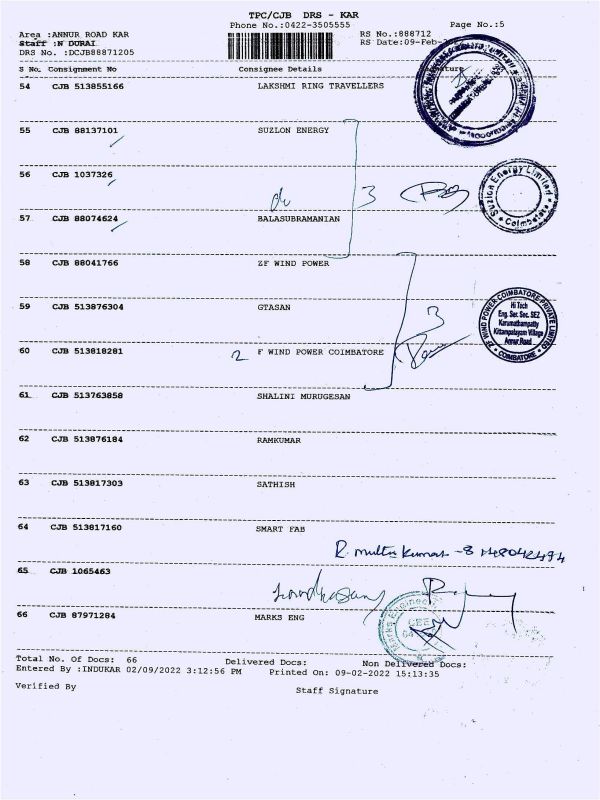 TPC/CJB DRS - KAR
Phone No.:0422-3505555 Page No.:5
Area :ANNUR ROAD KAR RS No.:888712
Staff :N DURAI RS Date:09-Feb-
DRS No. :DCJB88871205
S No. Consignment No Consignee Details Signature
54 CJB 513855166 LAKSHMI RING TRAVELLERS
55 CJB 88137101 SUZLON ENERGY
56 CJB 1037326
3
Suzlon Energy Limited
* Coimbatore *
57 CJB 88074624 BALASUBRAMANIAN
58 CJB 88041766 ZF WIND POWER
59 CJB 513876304 GTASAN
3
ZF WIND POWER COIMBATORE PRIVATE LIMITED
Hi Tech
Eng. Ser. Sec. SEZ
Karumathampatty
Kittampalayam Village
Annur Road
* COIMBATORE *
60 CJB 513818281 2 F WIND POWER COIMBATORE
61 CJB 513763858 SHALINI MURUGESAN
62 CJB 513876184 RAMKUMAR
63 CJB 513817303 SATHISH
64 CJB 513817160 SMART FAB
R. Muthu Kumar
65 CJB 1065463
66 CJB 87971284 MARKS ENG
Marks Engineer
Total No. Of Docs: 66 Delivered Docs: Non Delivered Docs:
Entered By :INDUKAR 02/09/2022 3:12:56 PM Printed On: 09-02-2022 15:13:35
Verified By Staff Signature